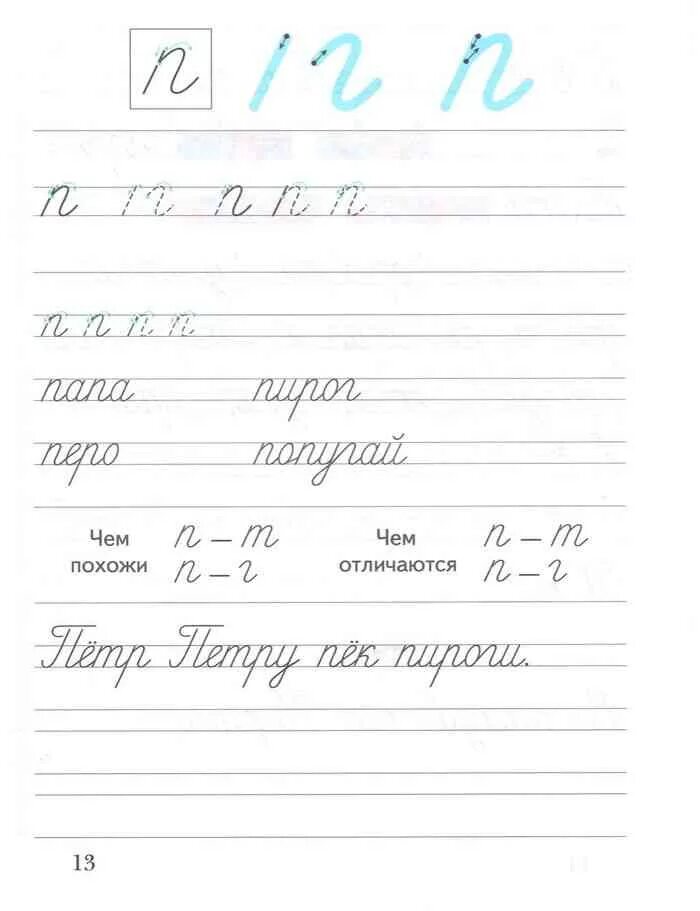 п г п
п г п п п
п п п п
папа пирог
перо попугай
Чем похожи п – т п – г Чем отличаются п – т п – г
Пётр Петру пёк пироги.
13